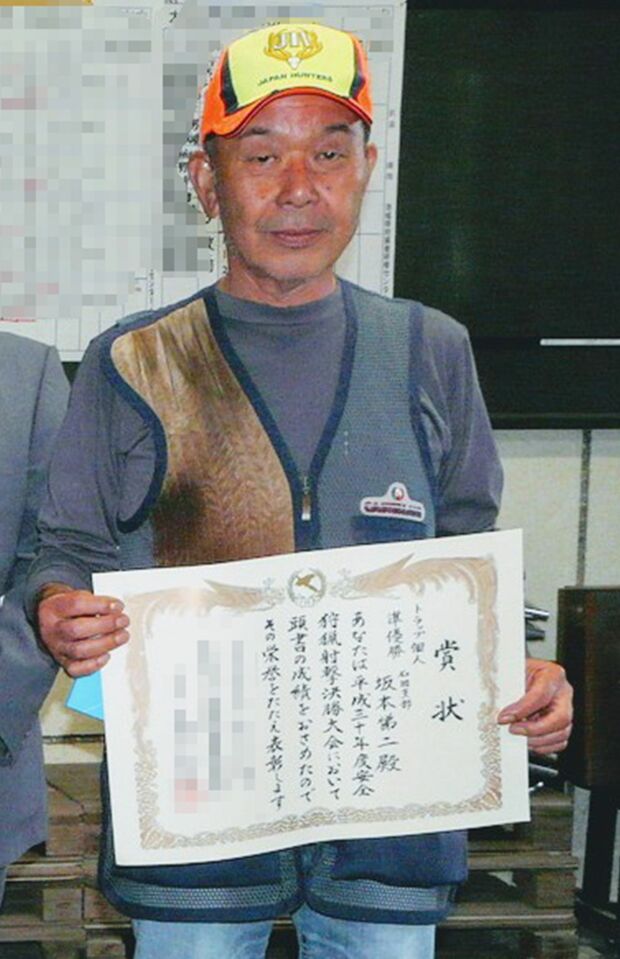 JAPAN HUNTERS
賞状
トラップ個人
準優勝
石岡支部
坂本弟二殿
あなたは平成三十年度安全
狩猟射撃決勝大会において
頭書の成績をおさめたので
その栄誉をたたえ表彰します